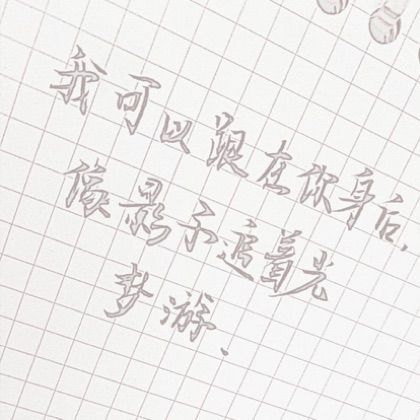 我可以跟在你身后、
像影子追着光
梦游、